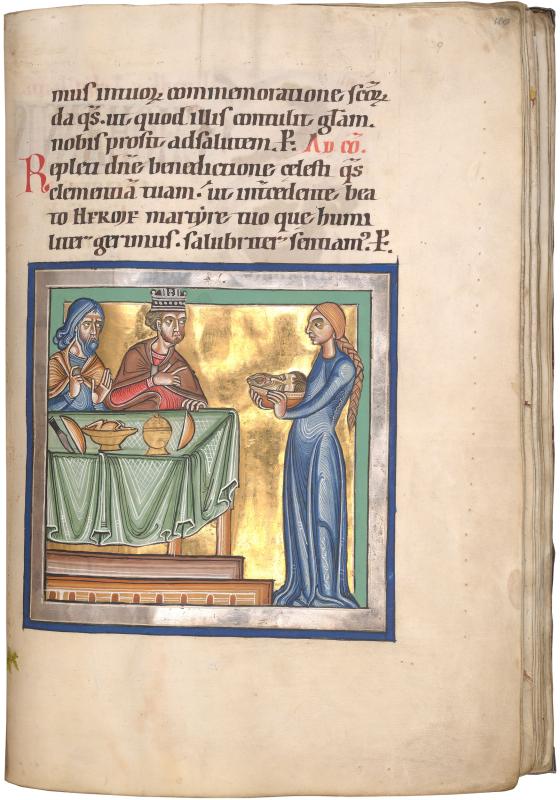 mus intuor commemoratione. secor̄
da qs. ut quod illis contulit glam.
nobis prosit ad salutem. P. Ad cō.
Repleti dn̄e benedictione celesti qs
clementiā tuam. ut int̄cedente bea
to HEROIE martyre tuo que humi
liter gerimus. salubriter sentiam᷒. P.